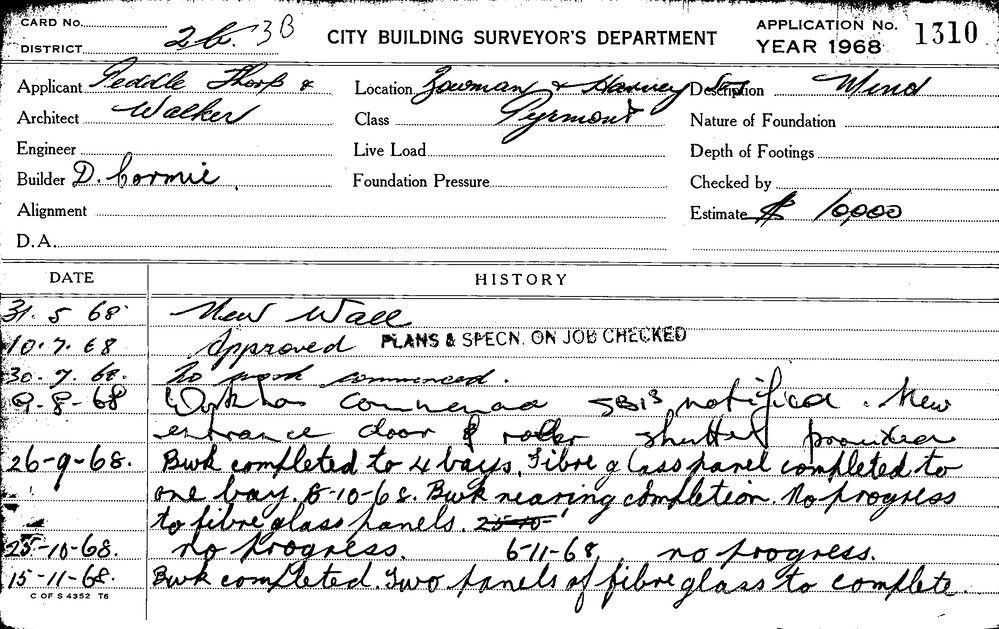 CARD No.
DISTRICT 2b. 3B
CITY BUILDING SURVEYOR'S DEPARTMENT
APPLICATION No. 1310
YEAR 1968
Applicant Peddle Thorp &
Architect Walker
Engineer
Builder D. Cormie
Alignment
D.A.
Location Bowman & Harvey Sts
Class Pyrmont
Live Load
Foundation Pressure
Description Mend
Nature of Foundation
Depth of Footings
Checked by
Estimate $ 10,000
DATE HISTORY
31. 5 68 New Wall
10. 7. 68 Approved PLANS & SPECN. ON JOB CHECKED
30. 7. 68. No work commenced.
9-8-68 Work has commenced notified. New
entrance door & roller shutter provided
26-9-68. Bwk completed to 4 bays. Fibre glass panel completed to
one bay. 8-10-68. Bwk nearing completion. No progress
to fibre glass panels. 25-10-
25-10-68. no progress. 6-11-68. no progress.
15-11-68. Bwk completed. Two panels of fibre glass to complete.
C OF S 4352 T6